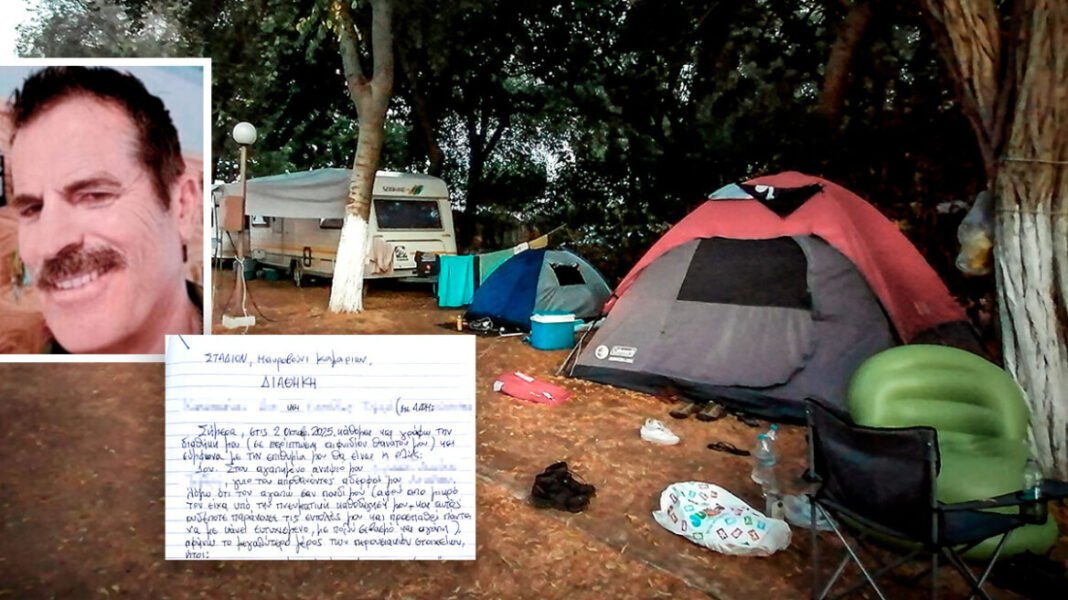 ΣΤΑΔΙΟΝ, Μαυροβούνι Καμαρίων,
ΔΙΑΘΗΚΗ
και
Σήμερα, στις 2 Οκτωβ. 2025, κάθομαι και γράφω την
διαθήκη μου (σε περίπτωση αιφνιδίου θανάτου μου) και
σύμφωνα με την επιθυμία μου θα είναι η εξής:
1ον. Στον αγαπημένο ανηψιό μου
, γυιο του αποθανόντος αδερφού μου
λόγω ότι τον αγαπώ σαν παιδί μου (αφού από μικρό
τον είχα υπό την πνευματική καθοδήγησή μου, και αυτός
ουδέποτε παράκουσε τις εντολές μου και προσπαθεί πάντα
να με κάνει ευτυχισμένο, με πολύ σεβασμό και αγάπη),
αφήνω το μεγαλύτερο μέρος των περουσιακών στοιχείων,
ήτοι:
Coleman